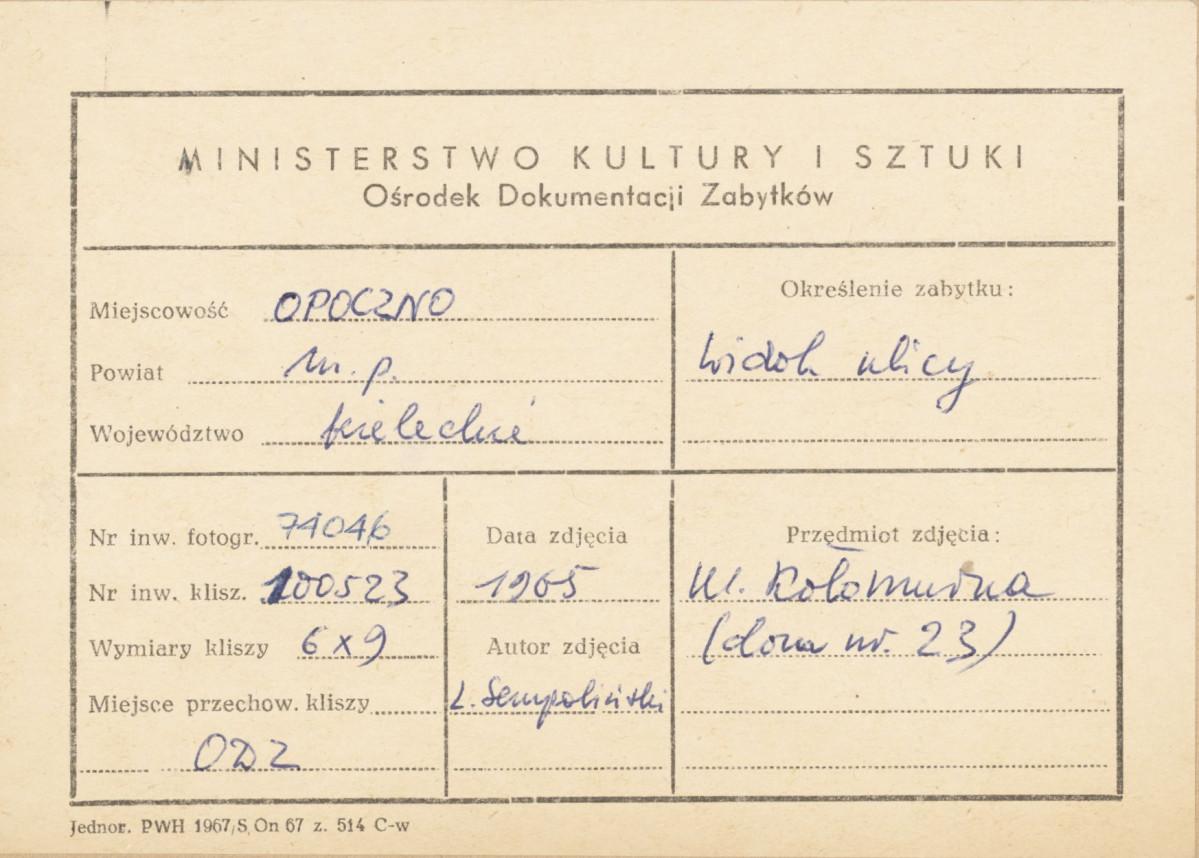 MINISTERSTWO KULTURY I SZTUKI
Ośrodek Dokumentacji Zabytków
Miejscowość OPOCZNO
Powiat m. p.
Województwo kieleckie
Określenie zabytku:
widok ulicy
Nr inw. fotogr. 74046
Nr inw. klisz. 100523
Wymiary kliszy 6x9
Miejsce przechow. kliszy
ODZ
Data zdjęcia
1965
Autor zdjęcia
L. Sempoliński
Przedmiot zdjęcia:
ul.
(dom nr. 23)
Jednor. PWH 1967/S On 67 z. 514 C-w